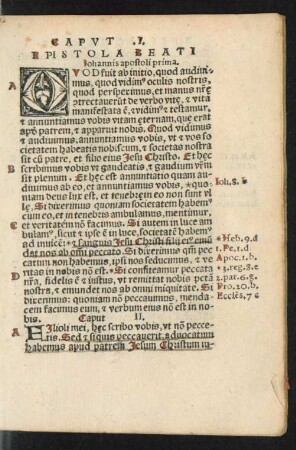 CAPVT .I.
EPISTOLA BEATI
Iohannis apostoli prima.
A
QVOD fuit ab initio, quod audiui-
mus, quod vidimꝰ oculis nostris,
quod perspeximus, et manus nr̄e
ꝯtrectauerūt de verbo vitę, ⁊ vita
manifestata ē, vidimꝰ ⁊ testamur,
⁊ annuntiamus vobis vitam ęternam, que erat
apꝰ patrem, ⁊ apparuit nobis. Quod vidimus
et audiuimus, annuntiamus vobis, vt ⁊ vos so-
cietatem habeatis nobiscum, ⁊ societas nostra
sit cū patre, et filio eius Iesu Christo. Et hęc
B
scribimus vobis vt gaudeatis, ⁊ gaudium vr̄m
sit plenum. Et hęc est annuntiatio quam audi-
uimus ab eo, et annuntiamus vobis, *quo-
Ioh. 8. b
niam deus lux est, et tenebrę in eo non sunt vl-
lę. Si dixerimus quoniam societatem habemꝰ
cum eo, et in tenebris ambulamus, mentimur,
C
et veritatem nō facimus. Si autem in luce am-
bulamꝰ, sicut ⁊ ipse ē in luce, societatē habemꝰ
ad inuicē: *⁊ sanguis Iesu Christi filii eiꝰ emū-
* Heb. 9. d
dat nos ab omni peccato. Si dixerimus qm̄ pec-
1. Pe. 1. d
catum non habemus, ipsi nos seducimus, ⁊ ve-
Apoc. 1. b.
D
ritas in nobis nō est. * Si confiteamur peccata
* 3. reg. 8. e
nr̄a, fidelis ē ⁊ iustus, vt remittat nobis pctā
2. par. 6. g.
nostra, ⁊ emundet nos ab omni iniquitate. Si
Pro. 20. b.
dixerimus: quoniam non peccauimus, menda-
Eccles. 7. c
cem facimus eum, ⁊ verbum eius nō est in no-
bis. Caput II.
A
Filioli mei, hęc scribo vobis, vt nō pecce-
tis. Sed ⁊ siquis peccauerit, aduocatum
habemus apud patrem Iesum Christum iu-